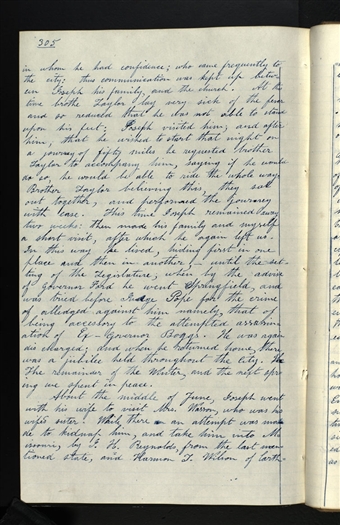 305
in whom he had confidence; who came frequently to
the city; thus communication was kept up betw-
een Joseph his family, and the church. At the
time brothe Taylor lay very sick of the fever
and so reduced that he was not able to stand
upon his feet: Joseph visited him; and after
him, that he wished to start that night on
a journey of fifty miles he requested brother
Taylor to accompany him, saying if he would
do so, he would be able to ride the whole way,
Brother Taylor believing this, they set
out together, and performed the journey
with ease. This time Joseph remained away
two weeks: then made his family and myself
a short visit, after which he again left us.
In this way he lived, hiding first in one
place and then in another until the set-
ting of the Legislature; when by the advice
of Governor Ford he went Springfield, and
was tried before Judge Pope for the crime
of alledged against him namely, that of
being accessory to the attempted assasin-
ation of Ex-Govenor Boggs. He was again
discharged; and when he returned home, there
was a jubilee held throughout the city. The
The remainder of the Winter, and the next spr-
ing we spent in peace.
About the middle of June, Joseph went
with his wife to visit Mrs. Wasson, who was his
wife's sister. While there an attempt was ma-
de to kidnap him, and take him into Mi
ssouri, by J. H. Reynolds, from the last men-
tioned state, and Harmon T. Wilson of Carth-